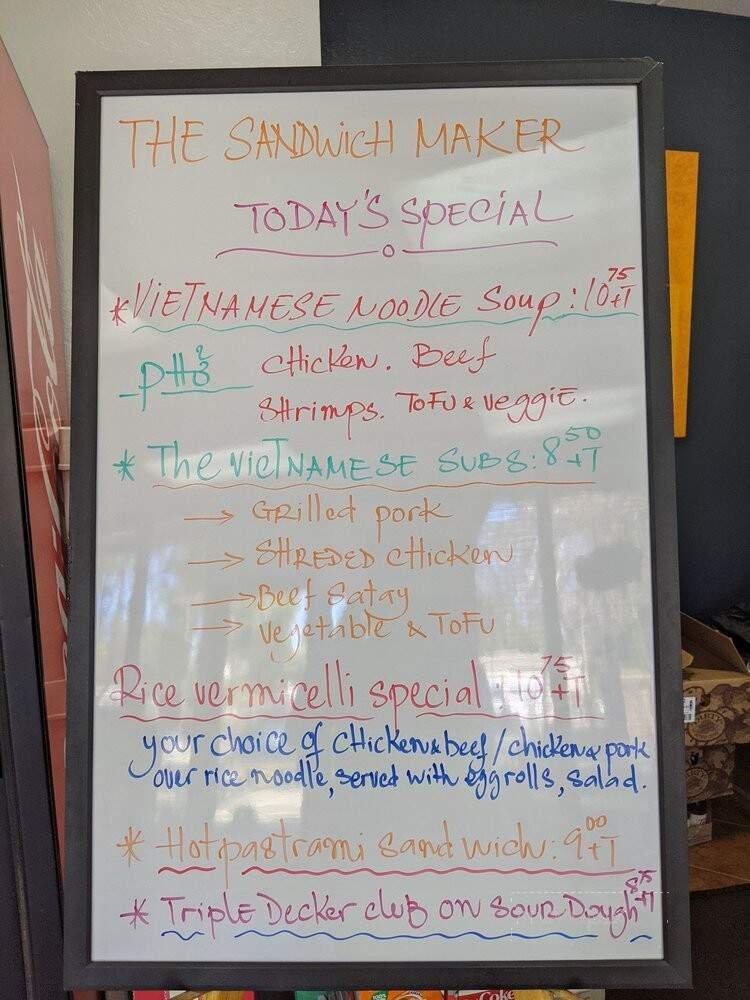 THE SANDWICH MAKER
TODAY'S SPECIAL
*VIETNAMESE NOODLE Soup: 10 75 +T
PHỞ CHicken. Beef
SHrimps. ToFu & veggie.
* The VIETNAMESE SUBS: 8 50 +T
→ GRilled pork
→ SHREDED CHicken
→ Beef Satay
→ Vegetable & ToFu
Rice vermicelli special: 10 75 +T
your choice of CHicken & beef / chicken & pork
over rice noodle, served with egg rolls, salad.
* Hot pastrami sandwich: 9 00 +T
* Triple Decker club on Sour Dough 8 75 +T
Coke